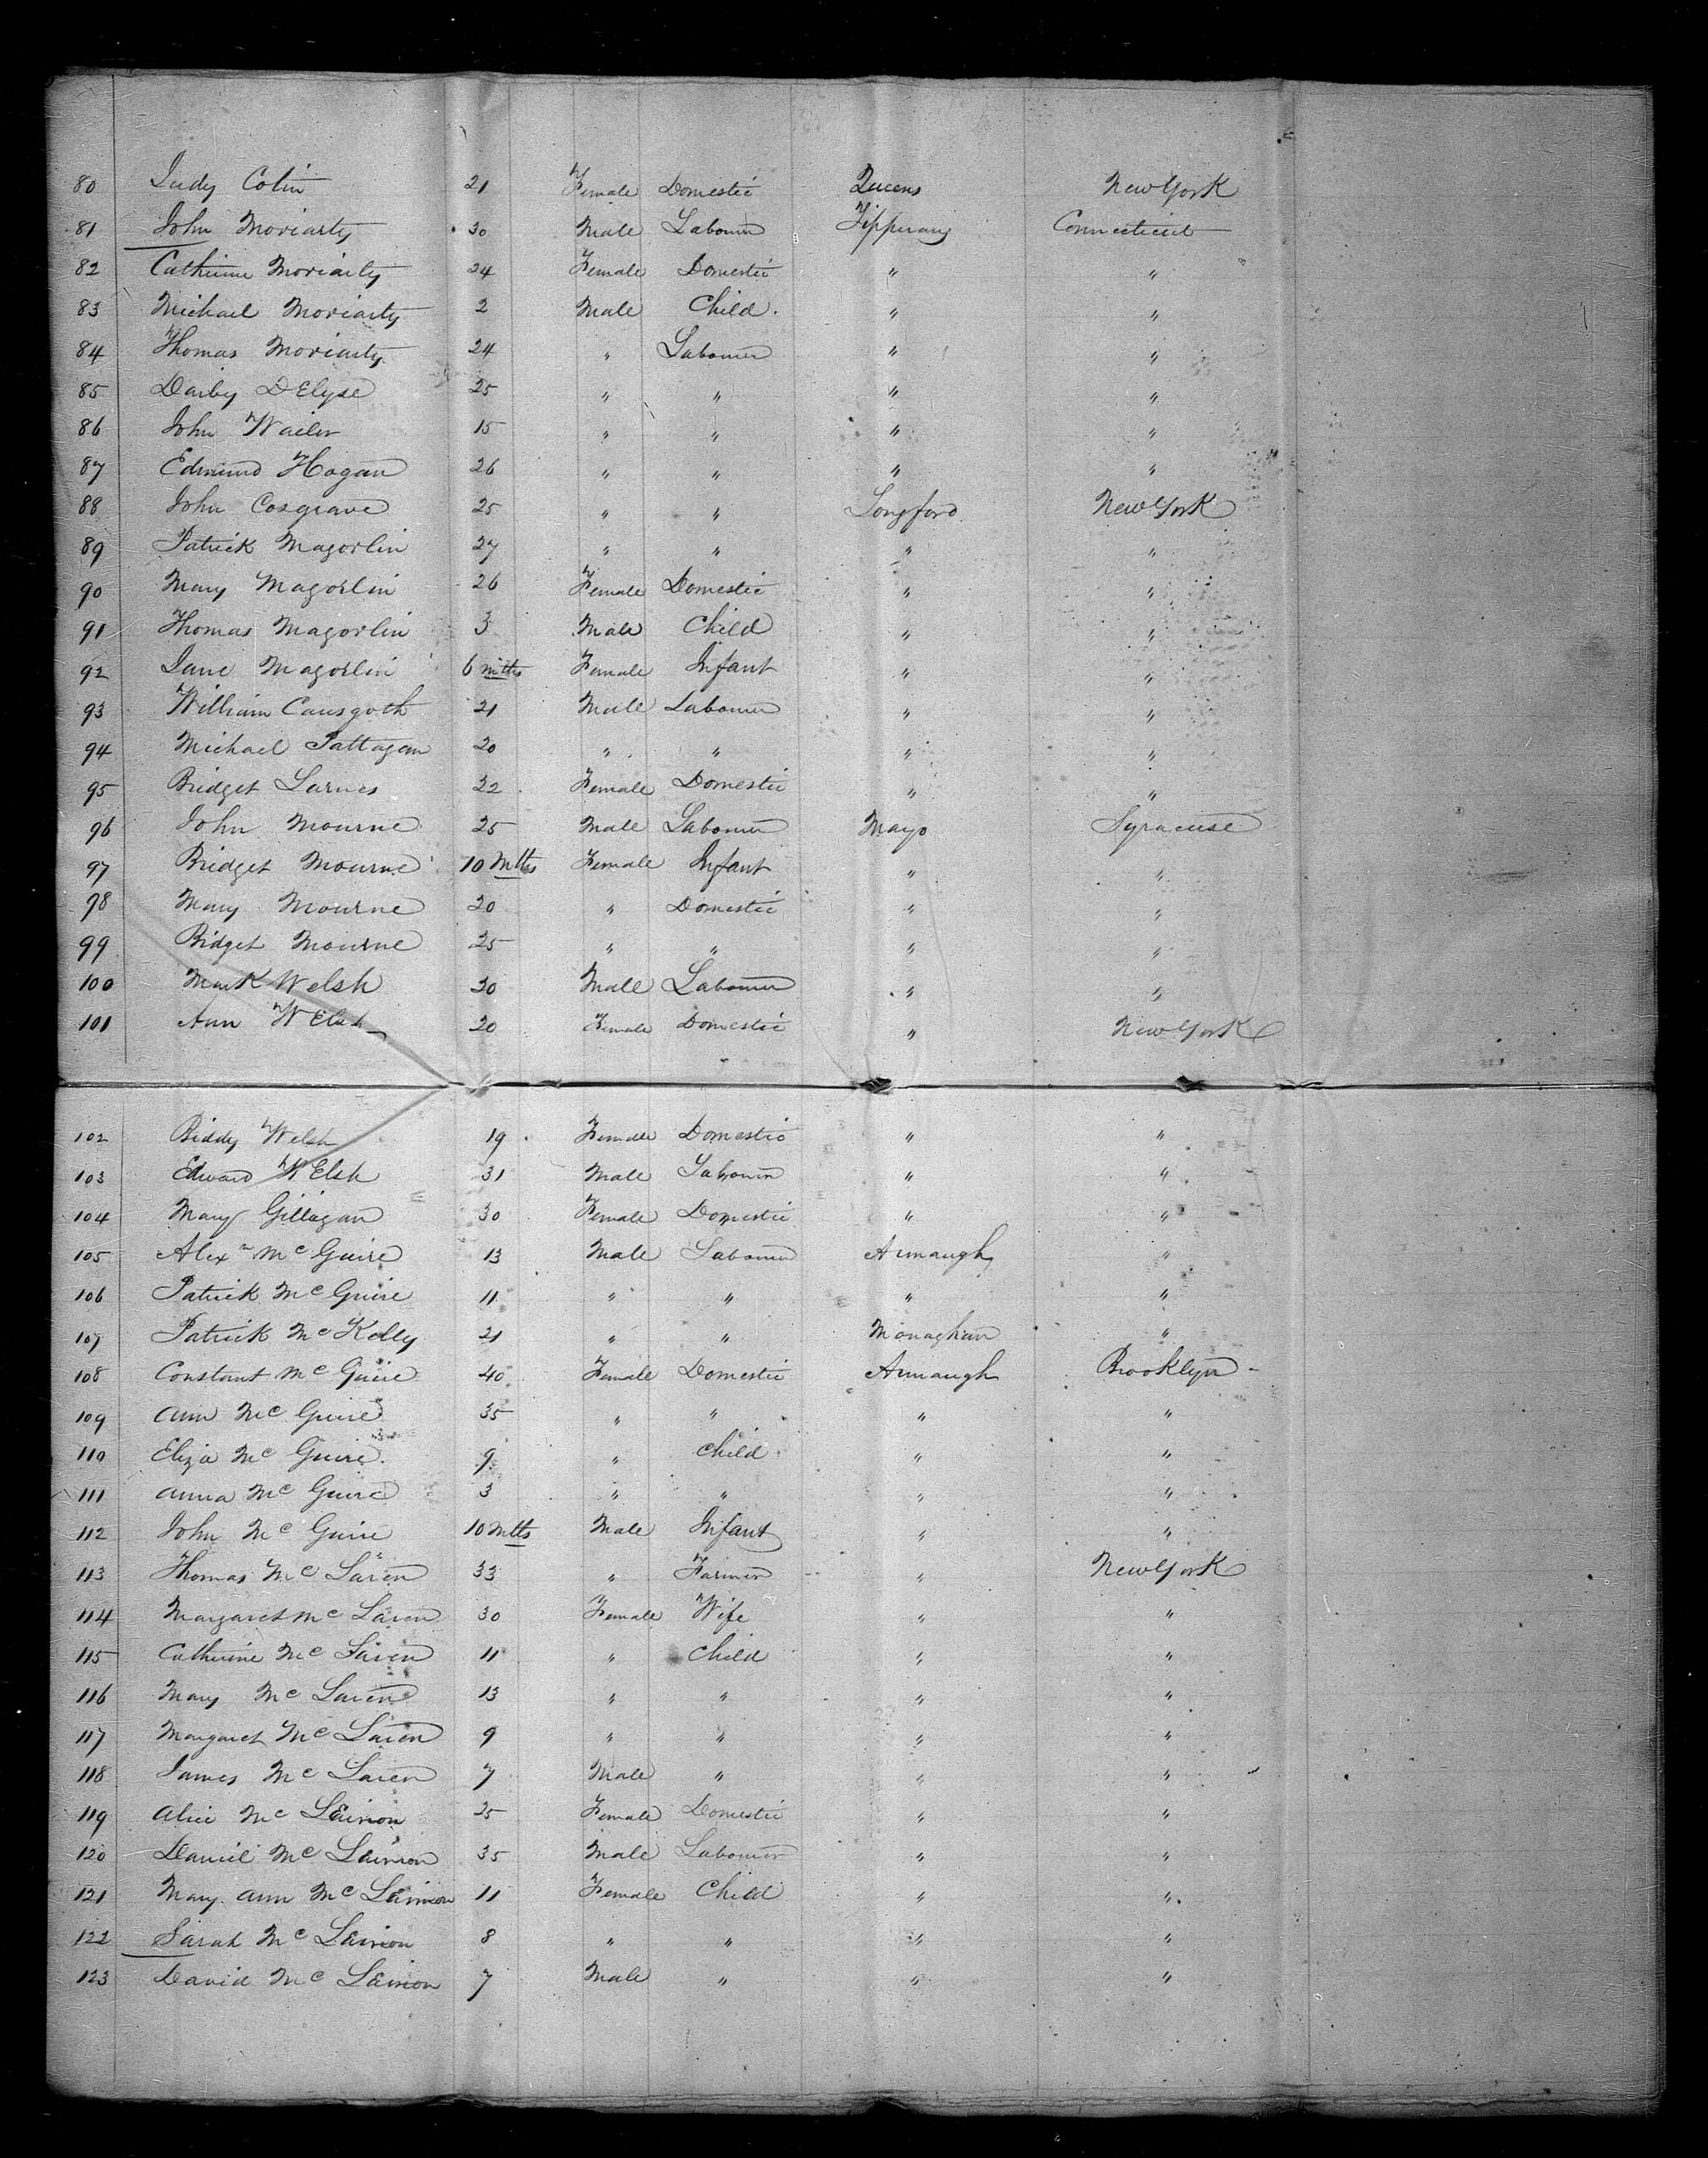 80 Judy Colin 21 Female Domestic Queens New York
81 John Moriarty 30 Male Labourer Tipperary Connecticut
82 Catherine Moriarty 24 Female Domestic " "
83 Michael Moriarty 2 Male Child " "
84 Thomas Moriarty 24 " Labourer " "
85 Darby DElyse 25 " " " "
86 John Wailer 15 " " " "
87 Edmund Hogan 26 " " " "
88 John Cosgrave 25 " " Longford New York
89 Patrick Magorlin 27 " " " "
90 Mary Magorlin 26 Female Domestic " "
91 Thomas Magorlin 3 Male Child " "
92 Jane Magorlin 6 mths Female Infant " "
93 William Causgoth 21 Male Labourer " "
94 Michael Pattagan 20 " " " "
95 Bridget Larnes 22 Female Domestic " "
96 John Mourne 25 Male Labourer Mayo Syracuse
97 Bridget Mourne 10 Mths Female Infant " "
98 Mary Mourne 20 " Domestic " "
99 Bridget Mourne 25 " " " "
100 Mark Welsh 30 Male Labourer " "
101 Ann Welsh 20 Female Domestic " New York
102 Biddy Welsh 19 Female Domestic " "
103 Edward Welsh 31 Male Labourer " "
104 Mary Gilligan 30 Female Domestic " "
105 Alexr McGuire 13 Male Labourer Armaugh "
106 Patrick McGuire 11 " " " "
107 Patrick McKelly 21 " " Monaghan "
108 Constant McGuire 40 Female Domestic Armaugh Brooklyn
109 Ann McGuire 35 " " " "
110 Eliza McGuire 9 " Child " "
111 Anna McGuire 3 " " " "
112 John McGuire 10 Mths Male Infant " "
113 Thomas McLaren 33 " Farmer " New York
114 Margaret McLaren 30 Female Wife " "
115 Catherine McLaren 11 " Child " "
116 Mary McLaren 13 " " " "
117 Margaret McLaren 9 " " " "
118 James McLaren 7 Male " " "
119 Alice Mc 25 Female Domestic " "
120 Daniel Mc 35 Male Labourer " "
121 Mary Ann Mc 11 Female Child " "
122 Sarah Mc 8 " " " "
123 David Mc 7 Male " " "